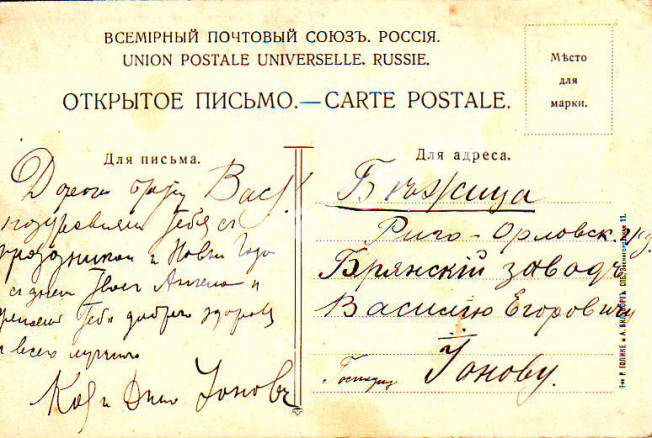 ВСЕМІРНЫЙ ПОЧТОВЫЙ СОЮЗЪ. РОССІЯ.
UNION POSTALE UNIVERSELLE. RUSSIE.
ОТКРЫТОЕ ПИСЬМО.—CARTE POSTALE.
Мѣсто
для
марки.
Для письма.
Дорогой братъ Вася!
поздравляем тебя съ
праздником и Новым Годом
съ днем Твоего Ангела и
желаем Тебѣ добраго здоровья
и всего лучшаго
Ионовъ
Для адреса.
Бѣжица
Риго-Орловск.
Брянскій заводъ
Василію Егоровичу
Господину Ионову.